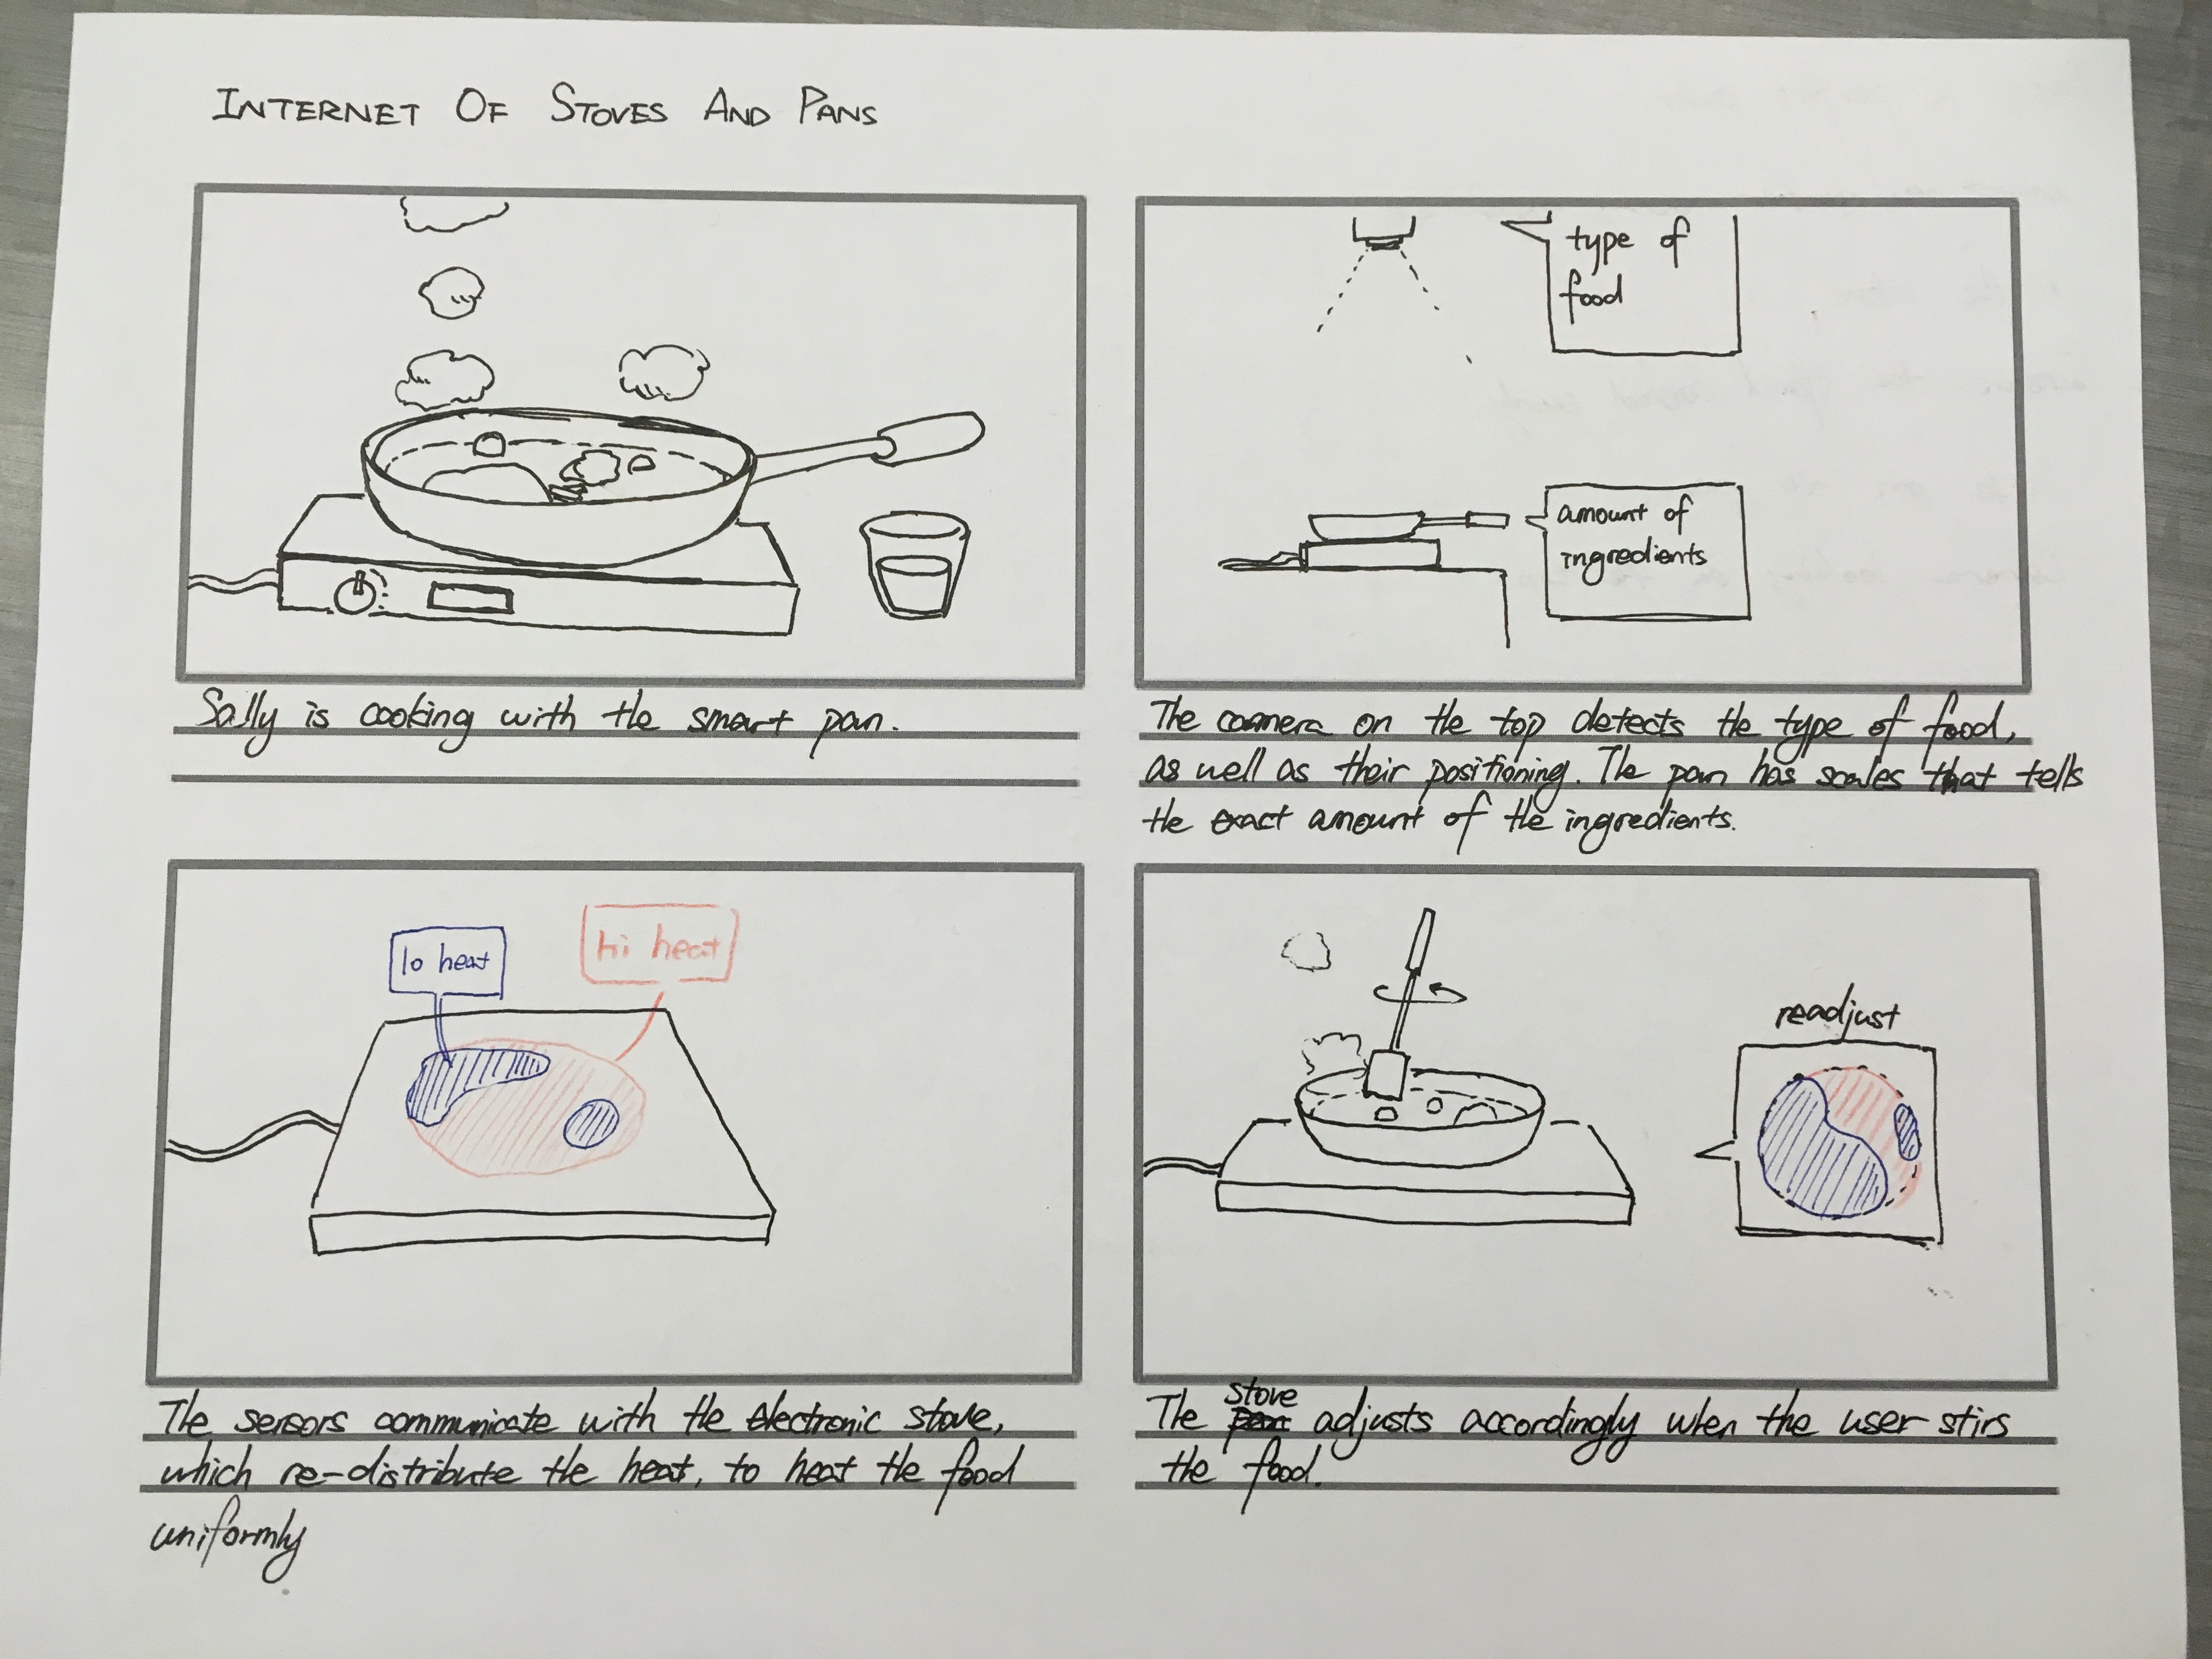 INTERNET OF STOVES AND PANS
type of
food
amount of
ingredients
Sally is cooking with the smart pan.
The camera on the top detects the type of food,
as well as their positioning. The pan has scales that tells
the exact amount of the ingredients.
lo heat
hi heat
readjust
The sensors communicate with the electronic stove,
which re-distribute the heat, to heat the food
uniformly
The stove adjusts accordingly when the user stirs
the food.